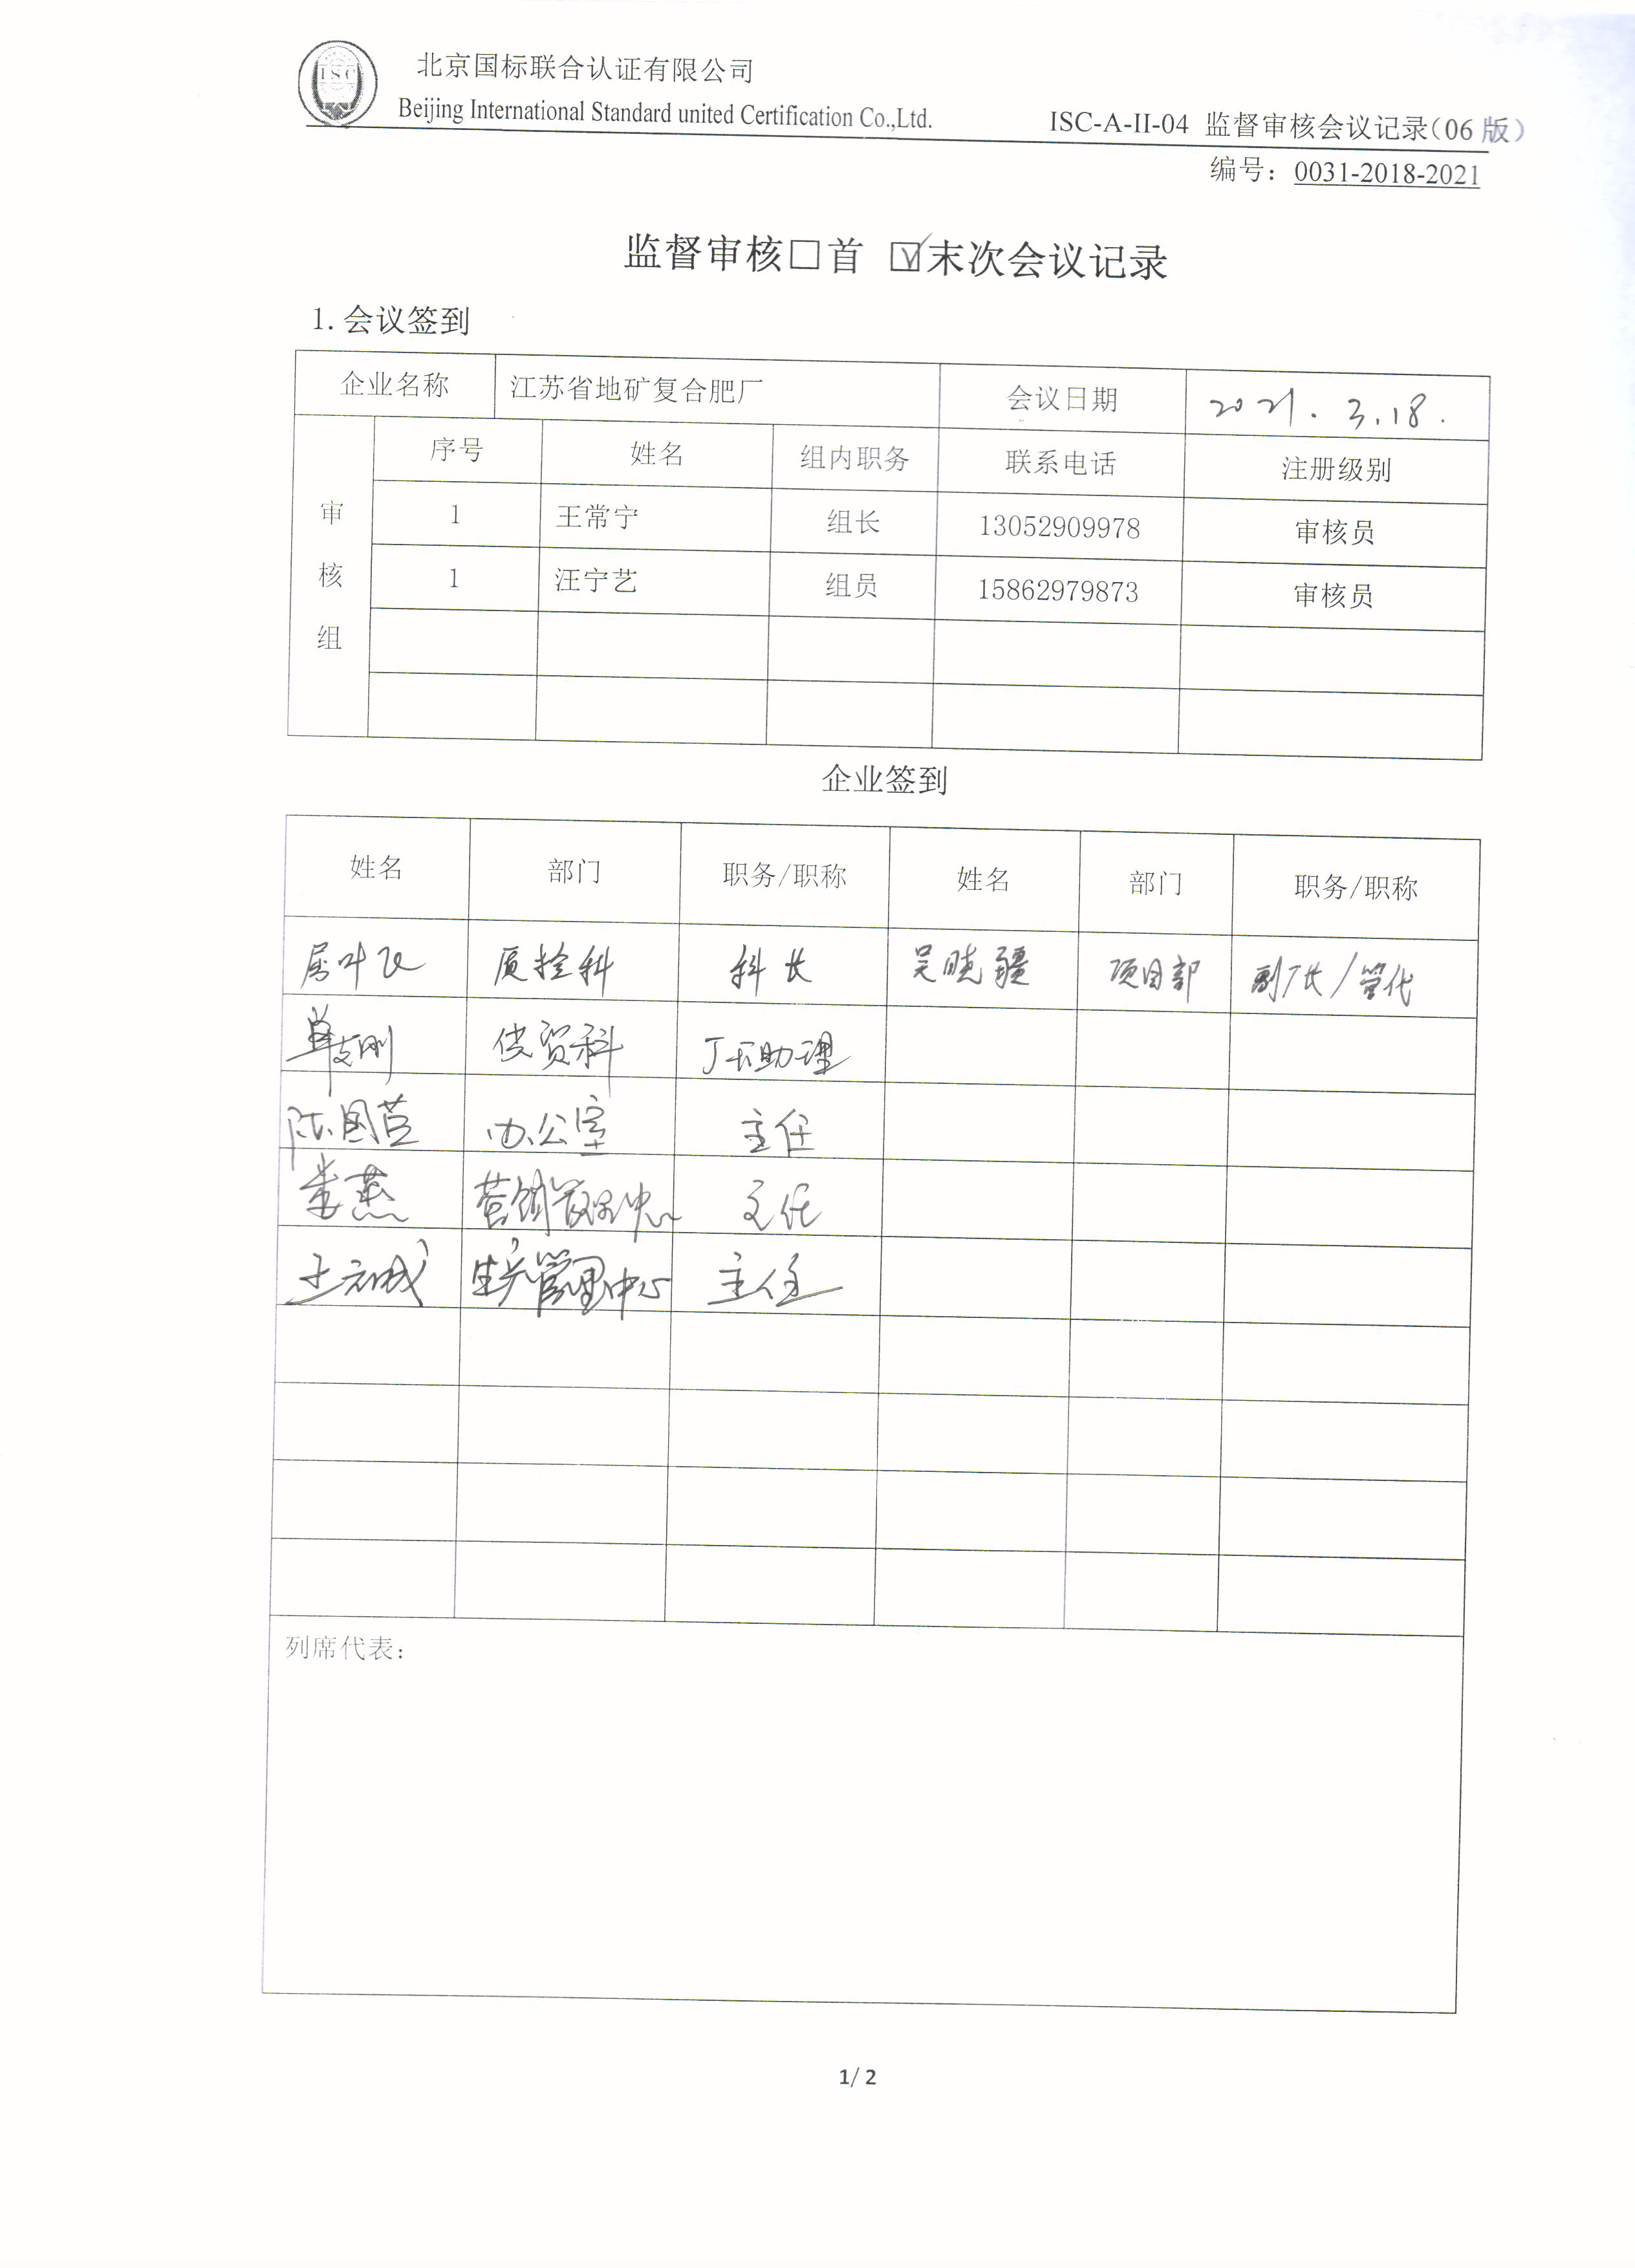 ISC
北京国标联合认证有限公司
Beijing International Standard united Certification Co.,Ltd.
ISC-A-II-04 监督审核会议记录(06 版)
编号：0031-2018-2021
监督审核□首 ☑末次会议记录
1.会议签到
企业名称 江苏省地矿复合肥厂 会议日期 2021.3.18.
审核组
序号 姓名 组内职务 联系电话 注册级别
1 王常宁 组长 13052909978 审核员
1 汪宁艺 组员 15862979873 审核员
企业签到
姓名 部门 职务/职称 姓名 部门 职务/职称
质检科 科长 吴晓疆 项目部 副厂长/管代
供贸科 厂长助理
办公室 主任
娄燕 营销管理中心 主任
生产管理中心 主任
列席代表：
1/ 2